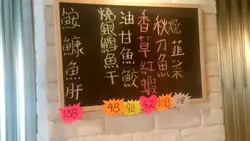 燒韮菜
秋刀魚
香草紅蝦
油甘魚鮫
燒銀鱈魚干
鮟鱇魚肝
138
48
42
18